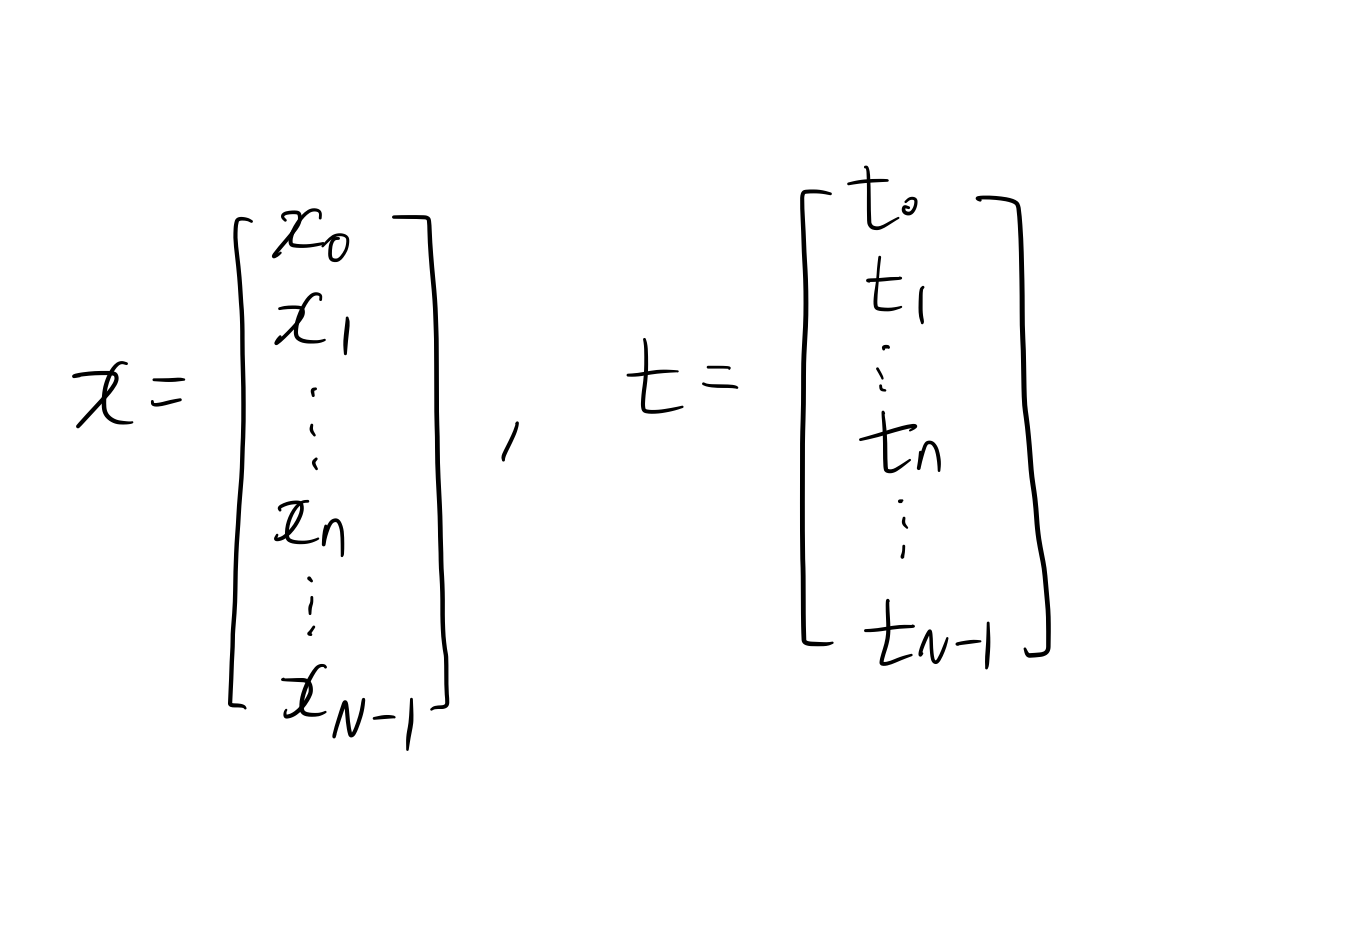 x = [ x_0 x_1 ⋮ x_n ⋮ x_{N-1} ] , t = [ t_0 t_1 ⋮ t_n ⋮ t_{N-1} ]